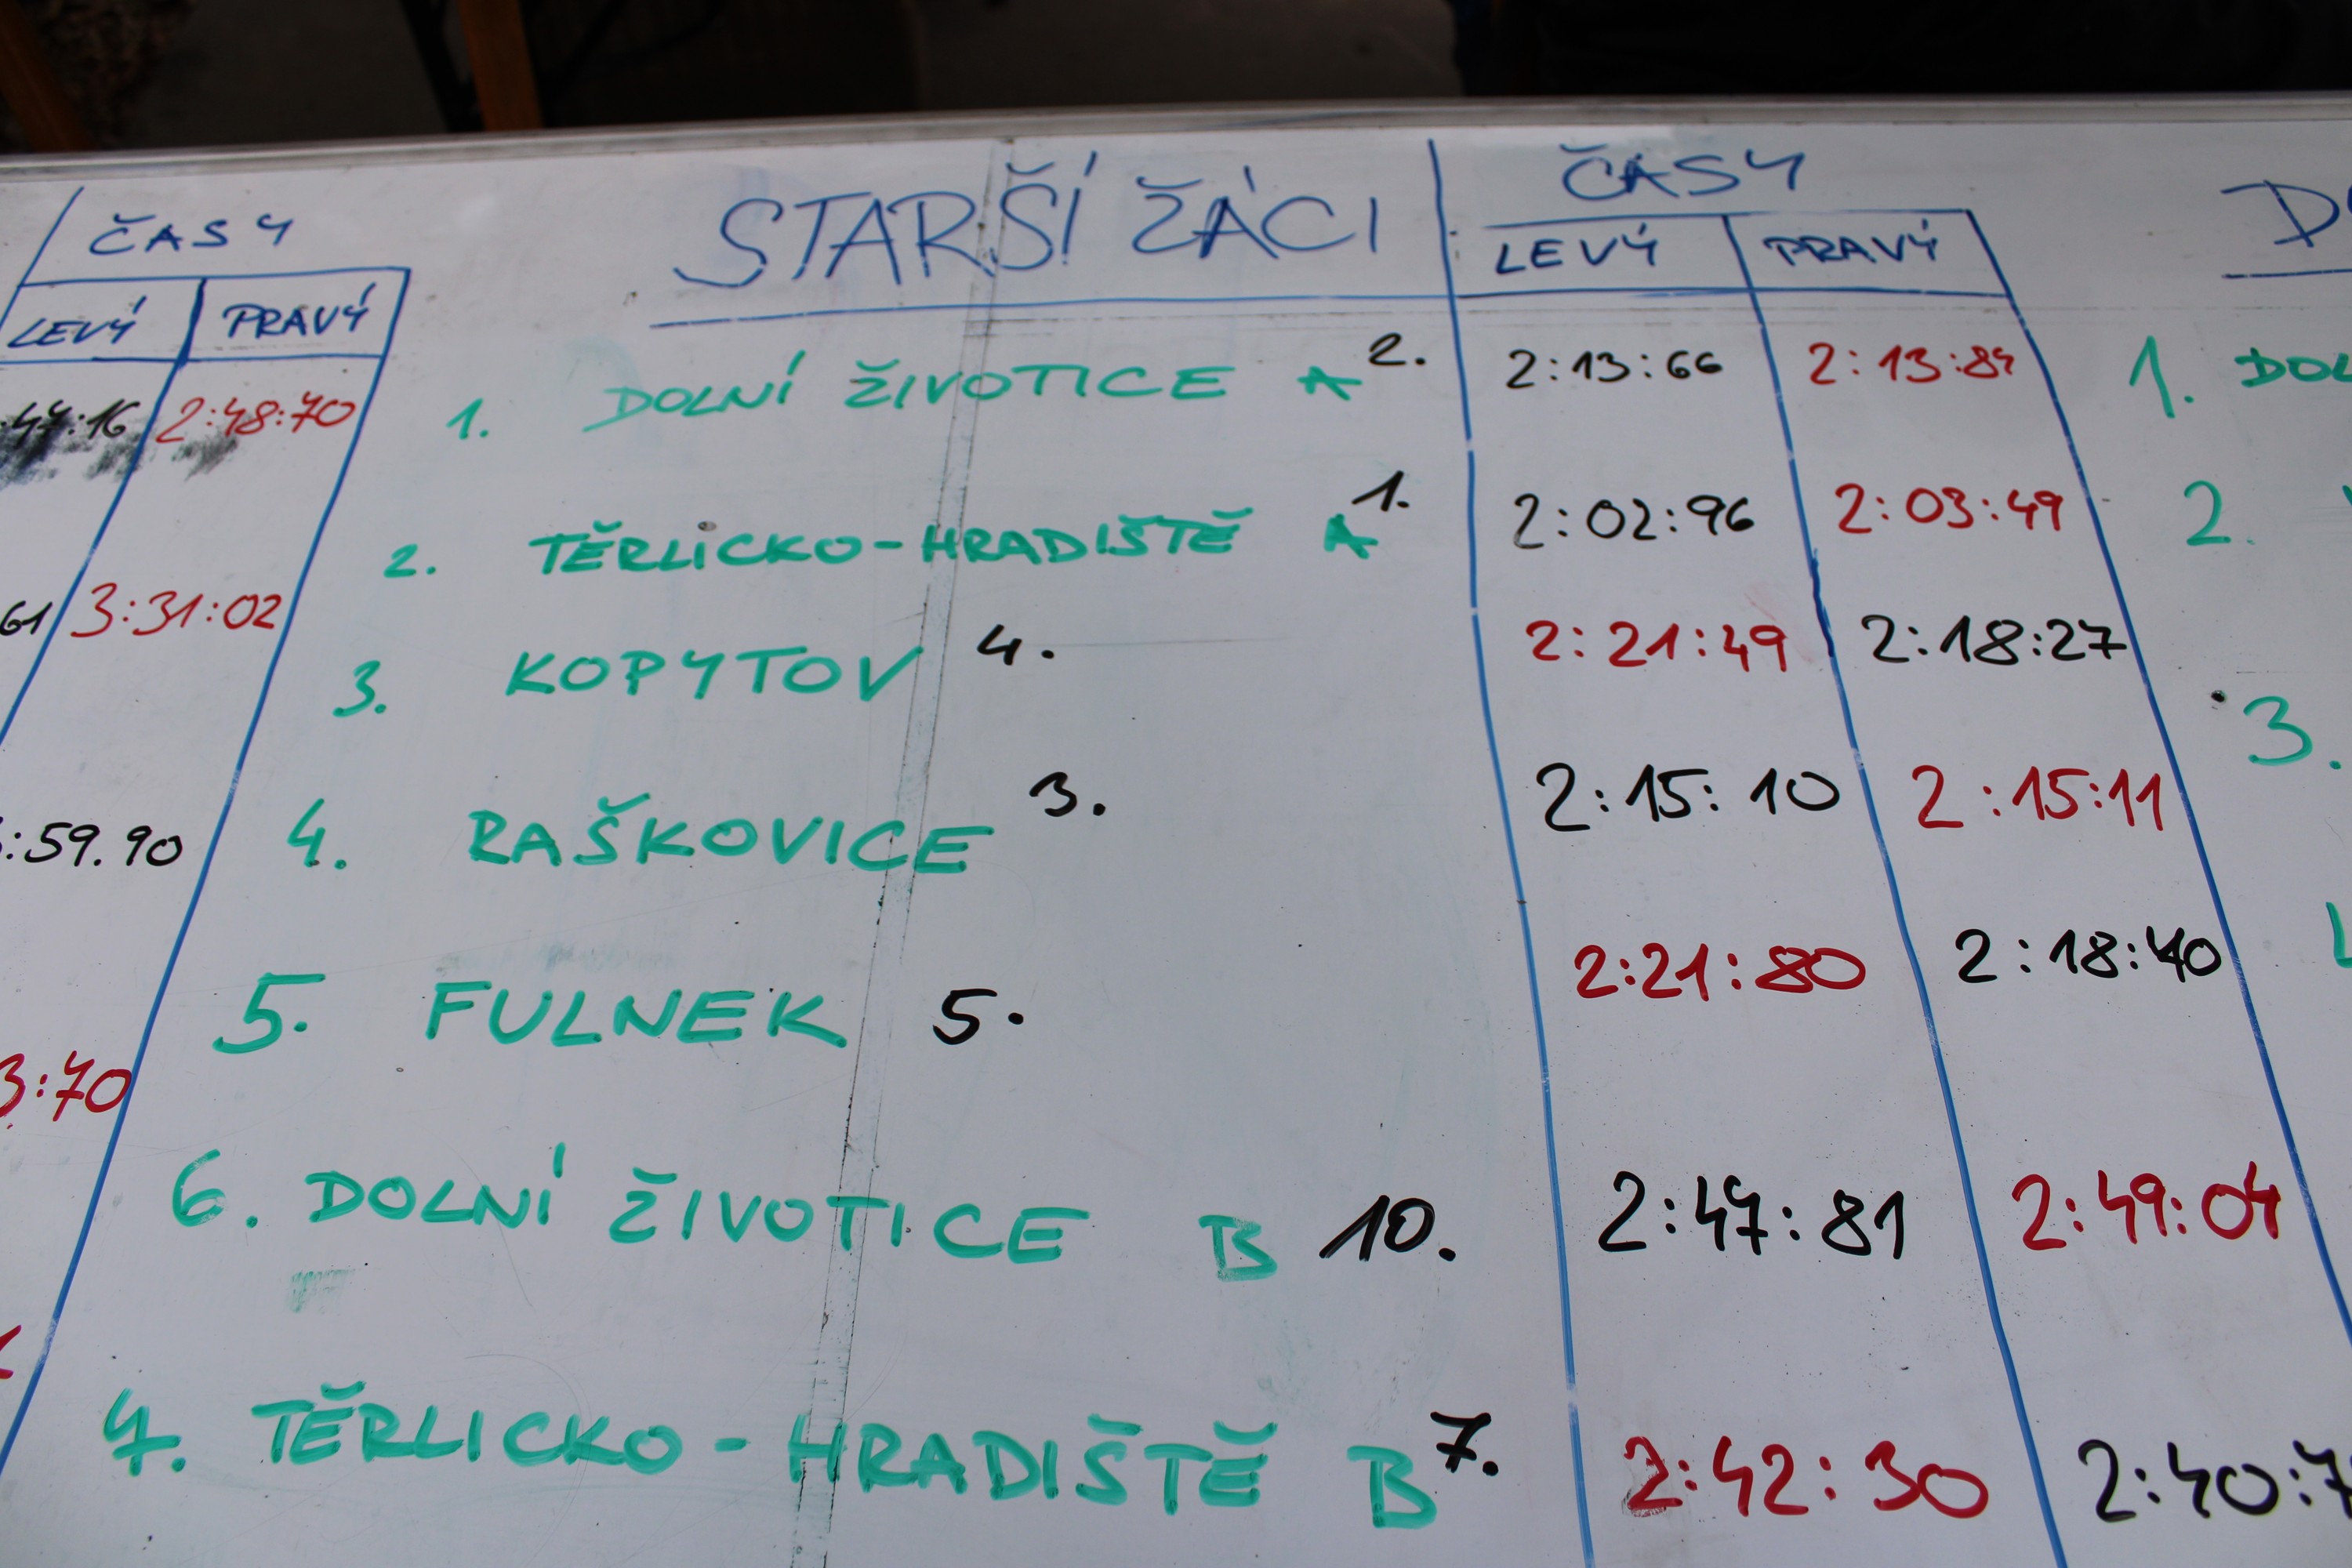 ČASY
LEVÝ PRAVÝ
:47:16 2:48:70
61 3:31:02
:59.90
3:70
STARŠÍ ŽÁCI
ČASY
LEVÝ PRAVÝ
1. DOLNÍ ŽIVOTICE A 2. 2:13:66 2:13:84
2. TĚRLICKO-HRADIŠTĚ A 1. 2:02:96 2:03:49
3. KOPYTOV 4. 2:21:49 2:18:27
4. RAŠKOVICE 3. 2:15:10 2:15:11
5. FULNEK 5. 2:21:80 2:18:40
6. DOLNÍ ŽIVOTICE B 10. 2:47:81 2:49:04
7. TĚRLICKO-HRADIŠTĚ B 7. 2:42:30 2:40:7
1. DOL
2.
3.